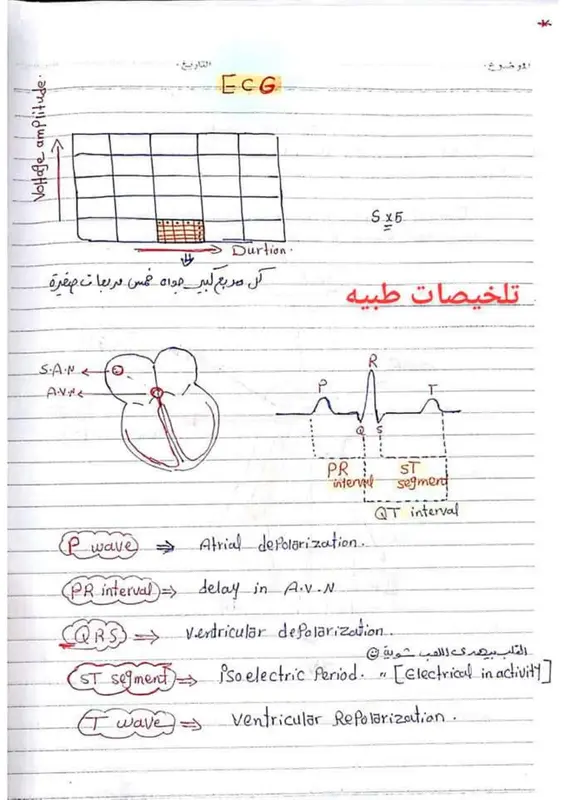 الموضوع:
التاريخ:
ECG
Voltage amplitude.
5x5
Durtion.
كل مربع كبير جواه خمس مربعات صغيرة
تلخيصات طبيه
S.A.N
A.V.N
R
P
T
Q
S
PR interval
ST segment
QT interval
P wave ⇒ Atrial depolarization.
PR interval ⇒ delay in A.V.N
QRS ⇒ Ventricular depolarization.
القلب بيهدى اللعب شوية
ST segment ⇒ isoelectric Period. " [Electrical in activity]
T wave ⇒ Ventricular Repolarization.